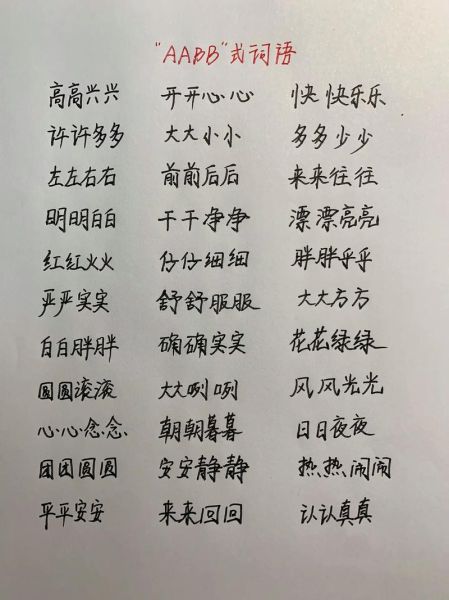 "AABB"式词语
高高兴兴 开开心心 快快乐乐
许许多多 大大小小 多多少少
左左右右 前前后后 来来往往
明明白白 干干净净 漂漂亮亮
红红火火 仔仔细细 胖胖乎乎
严严实实 舒舒服服 大大方方
白白胖胖 确确实实 花花绿绿
圆圆滚滚 大大咧咧 风风光光
心心念念 朝朝暮暮 日日夜夜
团团圆圆 安安静静 热热闹闹
平平安安 来来回回 认认真真